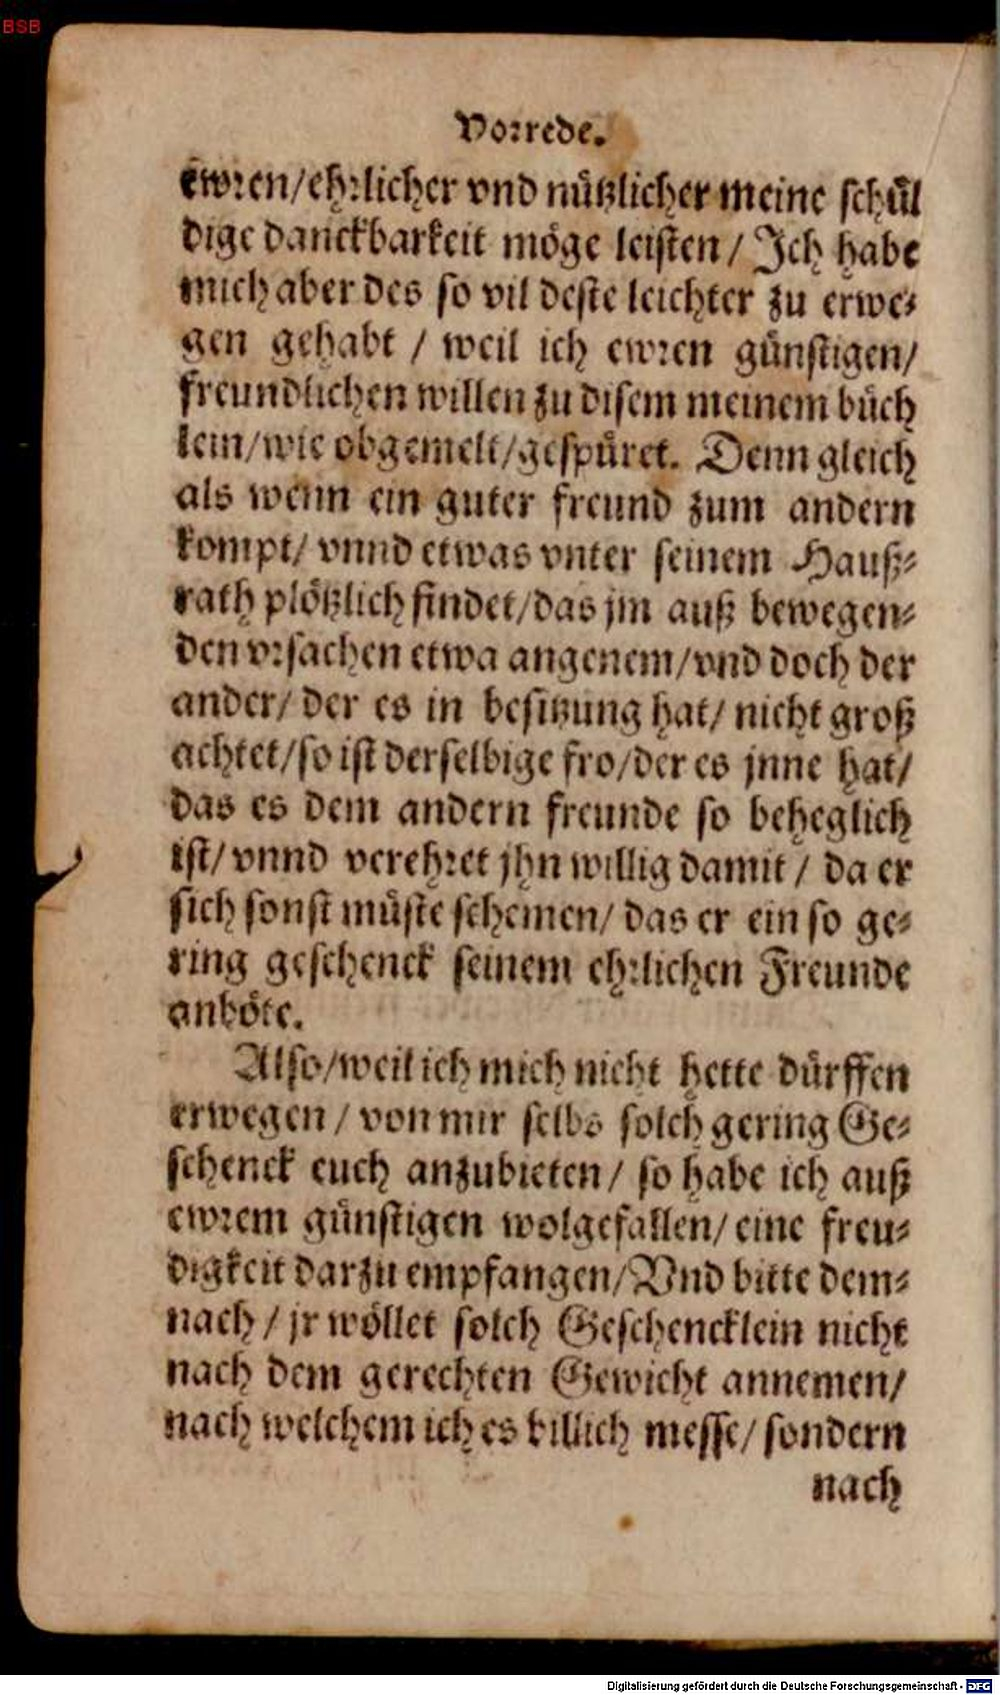 BSB
Vorrede.
ewren/ehrlicher vnd nützlicher meine schül
dige danckbarkeit möge leisten / Jch habe
mich aber des so vil deste leichter zu erwe-
gen gehabt / weil ich ewren günstigen/
freundlichen willen zu disem meinem büch
lein/wie obgemelt/gespüret. Denn gleich
als wenn ein guter freund zum andern
kompt/ vnnd etwas vnter seinem Hauß-
rath plötzlich findet/das jm auß bewegen-
den vrsachen etwa angenem/vnd doch der
ander/ der es in besitzung hat/ nicht groß
achtet/so ist derselbige fro/der es jnne hat/
das es dem andern freunde so beheglich
ist/ vnnd verehret jhn willig damit / da er
sich sonst müste schemen/ das er ein so ge-
ring geschenck seinem ehrlichen Freunde
anböte.
Also/weil ich mich nicht hette dürffen
erwegen / von mir selbs solch gering Ge-
schenck euch anzubieten/ so habe ich auß
ewrem günstigen wolgefallen/ eine freu-
digkeit darzu empfangen/Vnd bitte dem-
nach / jr wöllet solch Geschencklein nicht
nach dem gerechten Gewicht annemen/
nach welchem ich es billich messe/ sondern
nach
Digitalisierung gefördert durch die Deutsche Forschungsgemeinschaft - DFG